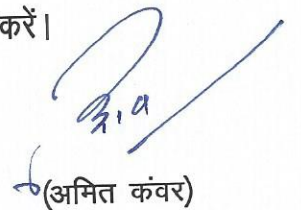 करें।
(अमित कंवर)